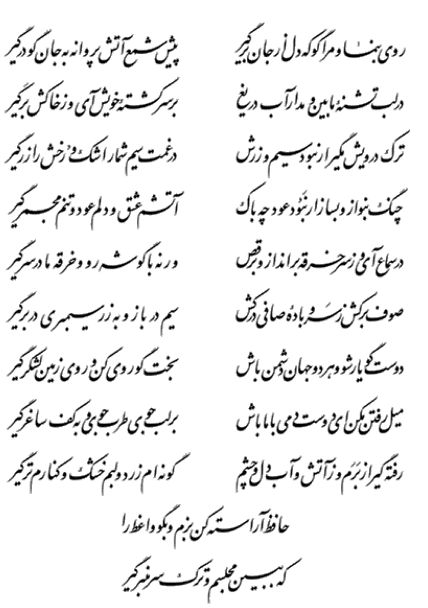 روی بنما و مرا گو که دل از جان برگیر پیش شمع آتش پروانه به جان گو درگیر
در لب تشنهٔ ما بین و مدار آب دریغ بر سر کشتهٔ خویش آی و ز خاکش برگیر
ترک درویش مگیر ار نبود سیم و زرش در غمت سیم شمار اشک و رخش را زر گیر
چنگ بنواز و بساز ار نبود عود چه باک آتشم عشق و دلم عود و تنم مجمر گیر
در سماع آی و ز سر خرقه برانداز و برقص ور نه با گوشه رو و خرقه ما در سر گیر
صوف برکش ز سر و بادهٔ صافی درکش سیم در باز و به زر سیمبری در بر گیر
دوست گو یار شو و هر دو جهان دشمن باش بخت گو روی کن و روی زمین لشکر گیر
میل رفتن مکن ای دوست دمی با ما باش بر لب جوی طرب جوی و به کف ساغر گیر
رفته گیر از برم و ز آتش و آب دل و چشم گونه‌ام زرد و لبم خشک و کنارم تر گیر
حافظ آراسته کن بزم و بگو واعظ را
که ببین مجلسم و ترک سر منبر گیر